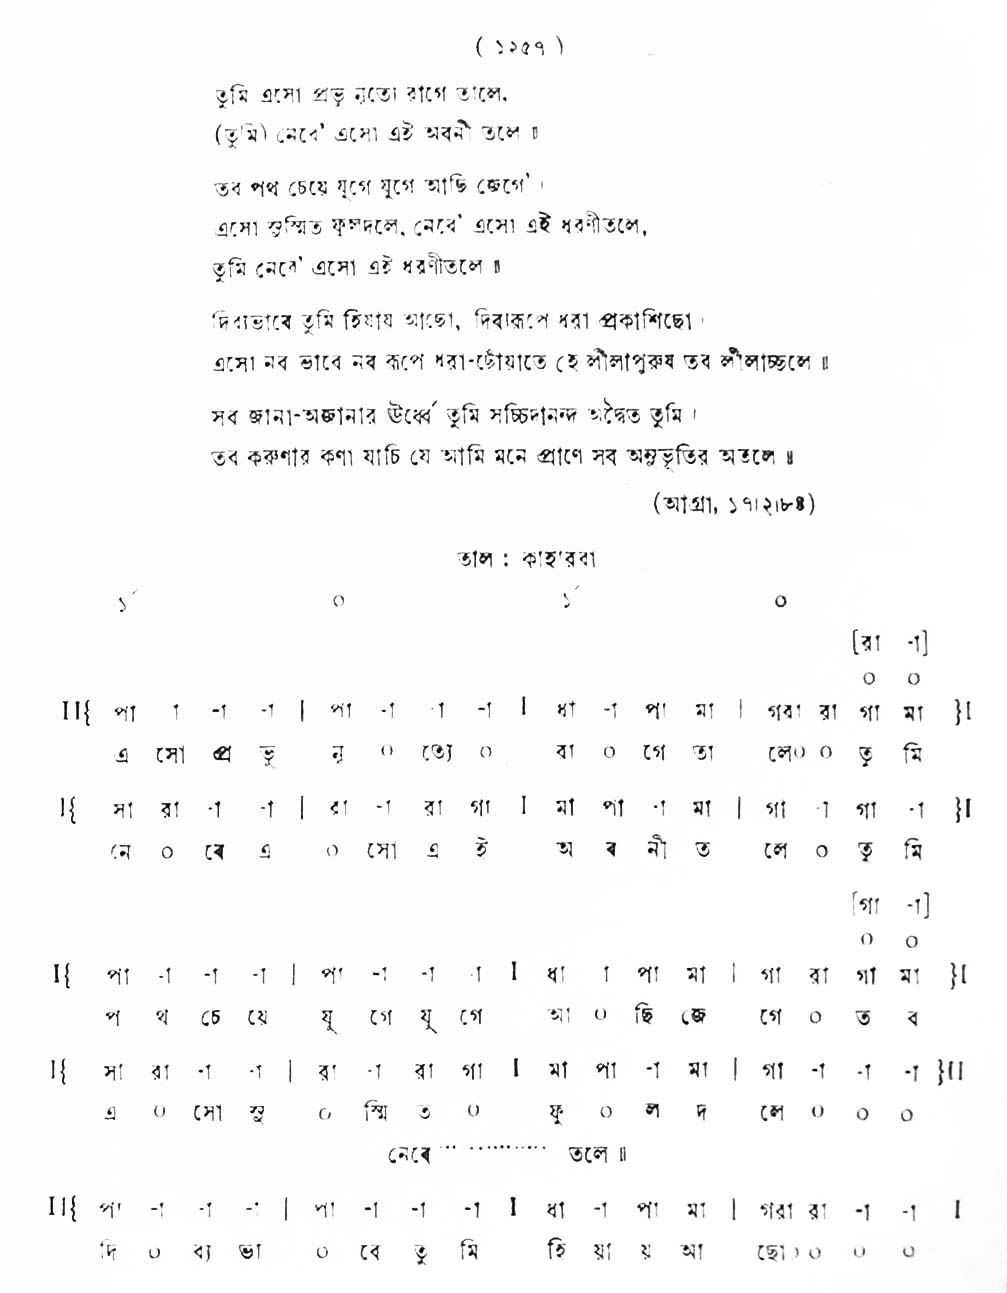 ( ১২৫৭ )
তুমি এসো প্রভু নৃত্যে রাগে তালে,
(তুমি) নেবে' এসো এই অবনী তলে ॥
তব পথ চেয়ে যুগে যুগে আছি জেগে' ।
এসো সুস্মিত ফুলদলে, নেবে' এসো এই ধরণীতলে,
তুমি নেবে' এসো এই ধরণীতলে ॥
দিব্যভাবে তুমি হিয়ায় আছো, দিব্যরূপে ধরা প্রকাশিছো ।
এসো নব ভাবে নব রূপে ধরা-ছোঁয়াতে হে লীলাপুরুষ তব লীলাচ্ছলে ॥
সব জানা-অজানার ঊর্ধ্বে তুমি সচ্চিদানন্দ অদ্বৈত তুমি ।
তব করুণার কণা যাচি যে আমি মনে প্রাণে সব অনুভূতির অতলে ॥
(আগ্রা, ১৭।২।৮৪)
তাল : কাহ'রবা
১´ ০ ১´ ০
[রা -া]
০ ০
II{ পা া -া -া | পা -া -া -া I ধা -া পা মা | গরা রা গা মা }I
এ সো প্র ভু নৃ ০ ত্যে ০ রা ০ গে তা লে০ ০ তু মি
I{ সা রা -া -া | রা -া রা গা I মা পা -া মা | গা -া গা -া }I
নে ০ বে এ ০ সো এ ই অ ব নী ত লে ০ তু মি
[গা -া]
০ ০
I{ পা -া -া -া | পা -া -া -া I ধা া পা মা | গা রা গা মা }I
প থ চে য়ে যু গে যু গে আ ০ ছি জে গে ০ ত ব
I{ সা রা -া -া | রা -া রা গা I মা পা -া মা | গা -া -া -া }II
এ ০ সো সু ০ স্মি ত ০ ফু ০ ল দ লে ০ ০ ০
নেবে ............... তলে ॥
II{ পা -া -া -া | পা -া -া -া I ধা -া পা মা | গরা রা -া -া I
দি ০ ব্য ভা ০ বে তু মি হি য়া য় আ ছো০ ০ ০ ০